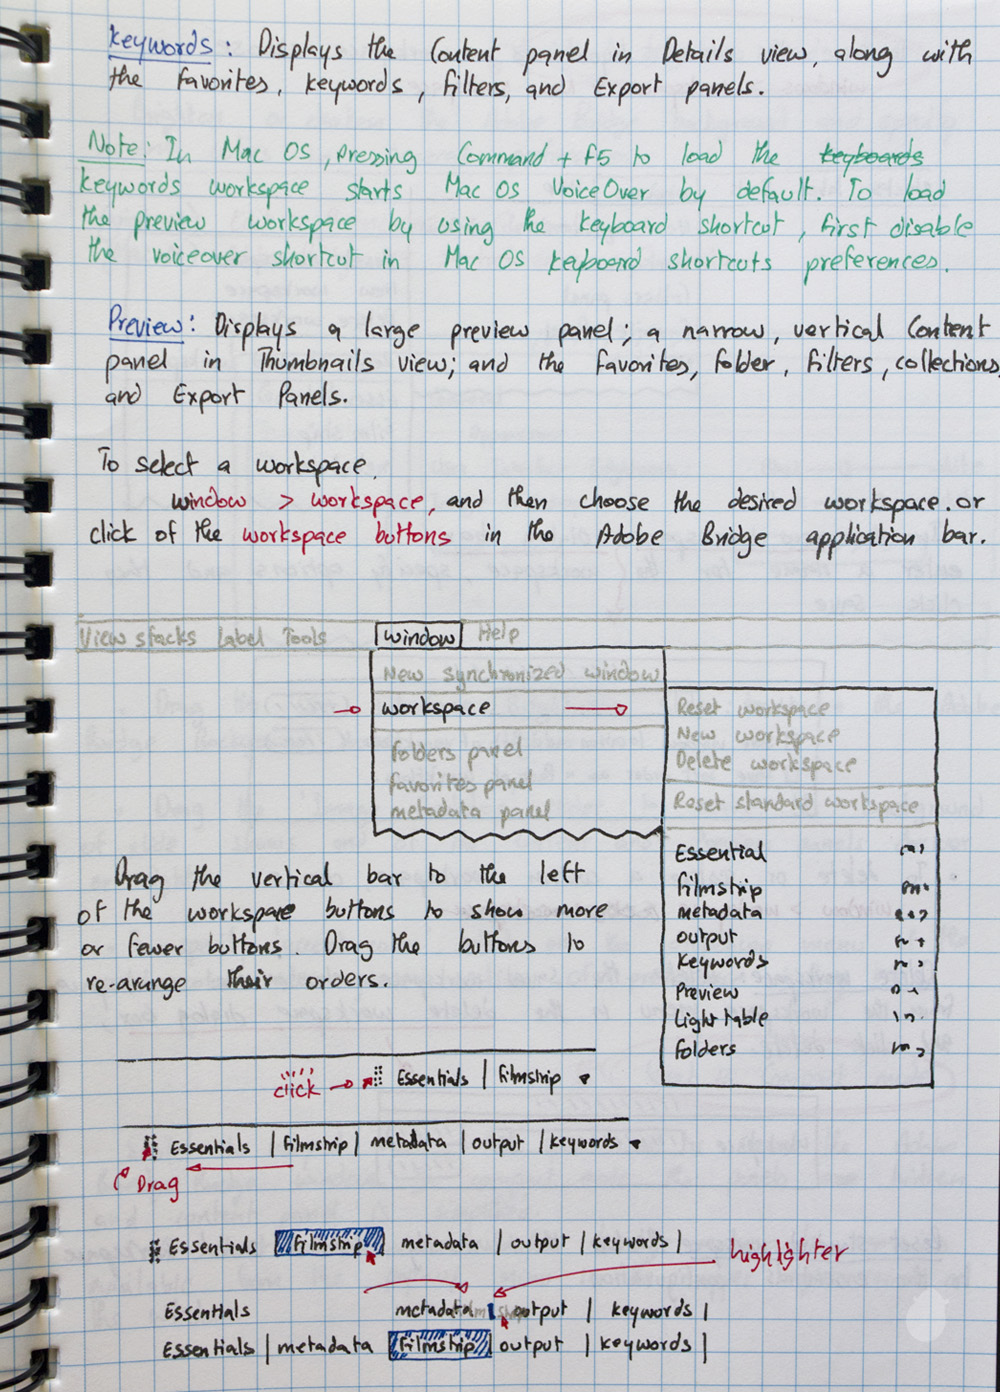 Keywords: Displays the Content panel in Details view, along with
the Favorites, keywords, Filters, and Export panels.
Note: In Mac OS, pressing Command + F5 to load the keyboards
keywords workspace starts Mac OS VoiceOver by default. To load
the preview workspace by using the keyboard shortcut, first disable
the voiceover shortcut in Mac OS keyboard shortcuts preferences.
Preview: Displays a large preview panel; a narrow, vertical Content
panel in Thumbnails view; and the Favorites, folder, Filters, collections,
and Export Panels.
To select a workspace,
window > workspace, and then choose the desired workspace. or
click of the workspace buttons in the Adobe Bridge application bar.
View stacks Label Tools window Help
New synchronized window
workspace
folders panel
favorites panel
metadata panel
Reset workspace
New workspace
Delete workspace
Reset standard workspace
Essential
filmstrip
metadata
output
keywords
Preview
Light table
Folders
Drag the vertical bar to the left
of the workspace buttons to show more
or fewer buttons. Drag the buttons to
re-arunge their orders.
click Essentials | filmstrip
Essentials | filmstrip | metadata | output | keywords
Drag
Essentials filmstrip metadata | output | keywords |
highlighter
Essentials metadata output | keywords |
Essentials | metadata filmstrip output | keywords |